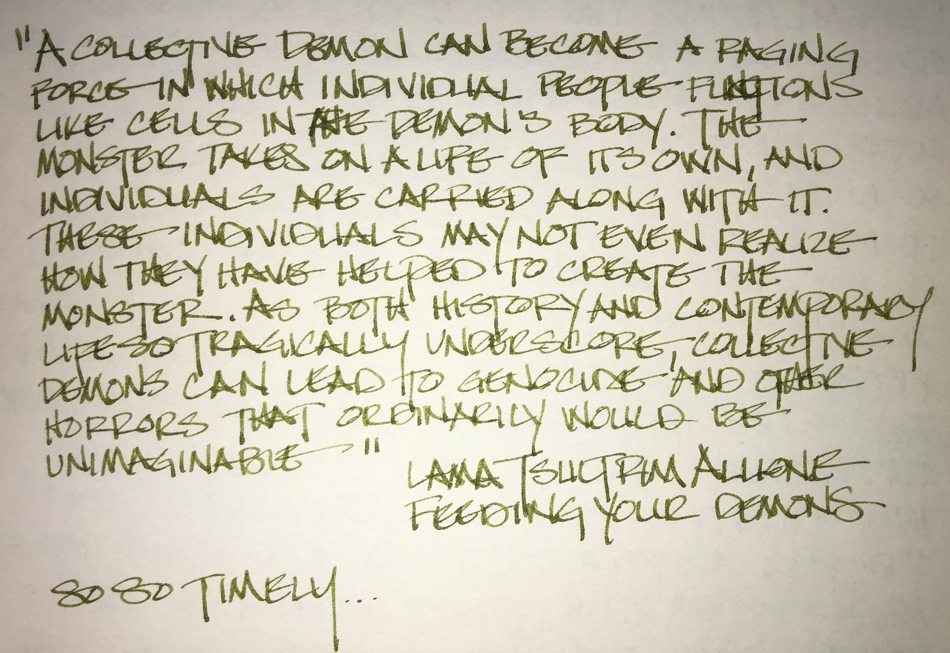 "A COLLECTIVE DEMON CAN BECOME A RAGING
FORCE IN WHICH INDIVIDUAL PEOPLE FUNCTIONS
LIKE CELLS IN THE DEMON'S BODY. THE
MONSTER TAKES ON A LIFE OF ITS OWN, AND
INDIVIDUALS ARE CARRIED ALONG WITH IT.
THESE INDIVIDUALS MAY NOT EVEN REALIZE
HOW THEY HAVE HELPED TO CREATE THE
MONSTER. AS BOTH HISTORY AND CONTEMPORARY
LIFE SO TRAGICALLY UNDERSCORE, COLLECTIVE
DEMONS CAN LEAD TO GENOCIDE AND OTHER
HORRORS THAT ORDINARILY WOULD BE
UNIMAGINABLE"
LAMA TSULTRIM ALLIONE
FEEDING YOUR DEMONS
SO SO TIMELY...